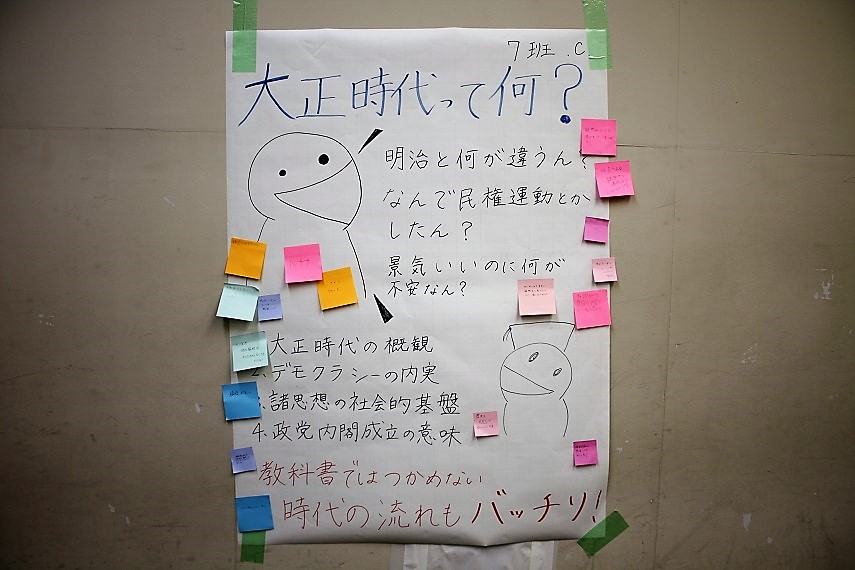 7班.C
大正時代って何?
明治と何が違うん?
なんで民権運動とか
したん?
景気いいのに何が
不安なん?
大正時代の概観
2.デモクラシーの内実
3.諸思想の社会的基盤
4.政党内閣成立の意味
教科書ではつかめない
時代の流れもバッチリ!